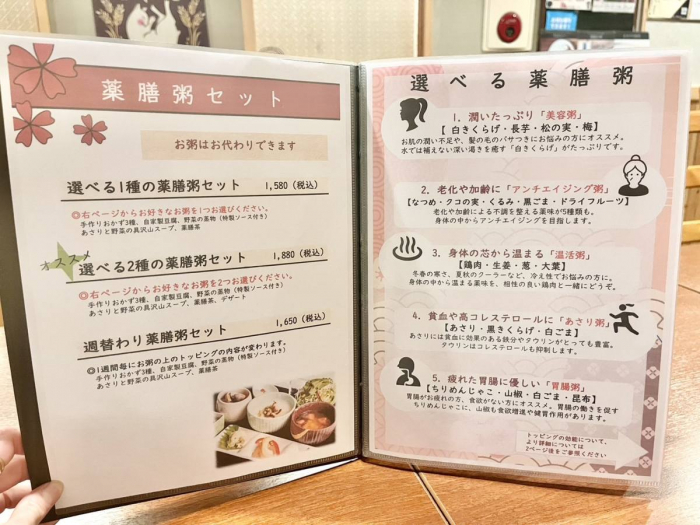 薬膳粥セット
お粥はお代わりできます
選べる1種の薬膳粥セット 1,580（税込）
◎右ページからお好きなお粥を1つお選びください。
手作りおかず3種、自家製豆腐、野菜の蒸物（特製ソース付き）
あさりと野菜の具沢山スープ、薬膳茶
オススメ
選べる2種の薬膳粥セット 1,880（税込）
◎右ページからお好きなお粥を2つお選びください。
手作りおかず3種、自家製豆腐、野菜の蒸物（特製ソース付き）
あさりと野菜の具沢山スープ、薬膳茶、デザート
週替わり薬膳粥セット 1,650（税込）
◎1週間毎にお粥の上のトッピングの内容が変わります。
手作りおかず3種、自家製豆腐、野菜の蒸物（特製ソース付き）
あさりと野菜の具沢山スープ、薬膳茶
選べる薬膳粥
1. 潤いたっぷり「美容粥」
【 白きくらげ・長芋・松の実・梅】
お肌の潤い不足や、髪の毛のパサつきにお悩みの方にオススメ。
水では補えない深い渇きを癒す「白きくらげ」がたっぷりです。
2. 老化や加齢に「アンチエイジング粥」
【なつめ・クコの実・くるみ・黒ごま・ドライフルーツ】
老化や加齢による不調を整える薬味が5種類も。
身体の中からアンチエイジングを目指します。
3. 身体の芯から温まる「温活粥」
【鶏肉・生姜・葱・大葉】
冬春の寒さ、夏秋のクーラーなど、冷え性でお悩みの方に。
身体の中から温まる薬味を、相性の良い鶏肉と一緒にどうぞ。
4. 貧血や高コレステロールに「あさり粥」
【あさり・黒きくらげ・白ごま】
あさりには貧血に効果のある鉄分やタウリンがとっても豊富。
タウリンはコレステロールも抑制します。
5. 疲れた胃腸に優しい「胃腸粥」
【ちりめんじゃこ・山椒・白ごま・昆布】
胃腸がお疲れの方、食欲がない方にオススメ。胃腸の働きを促す
ちりめんじゃこに、山椒も食欲増進や健胃作用があります。
トッピングの効能について、
より詳細については
2ページ後をご参照ください